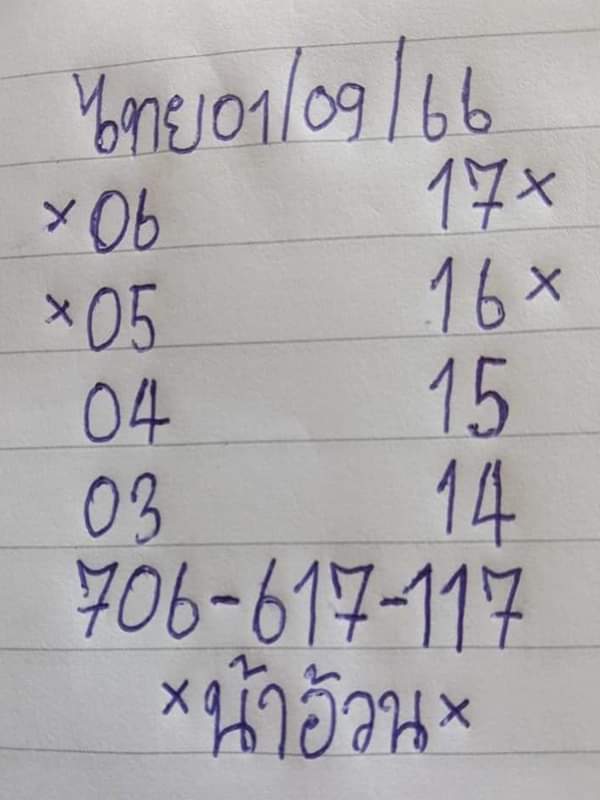 ไทย01/09/66
×06 17×
×05 16×
04 15
03 14
706-617-117
×น้าอ้วน×